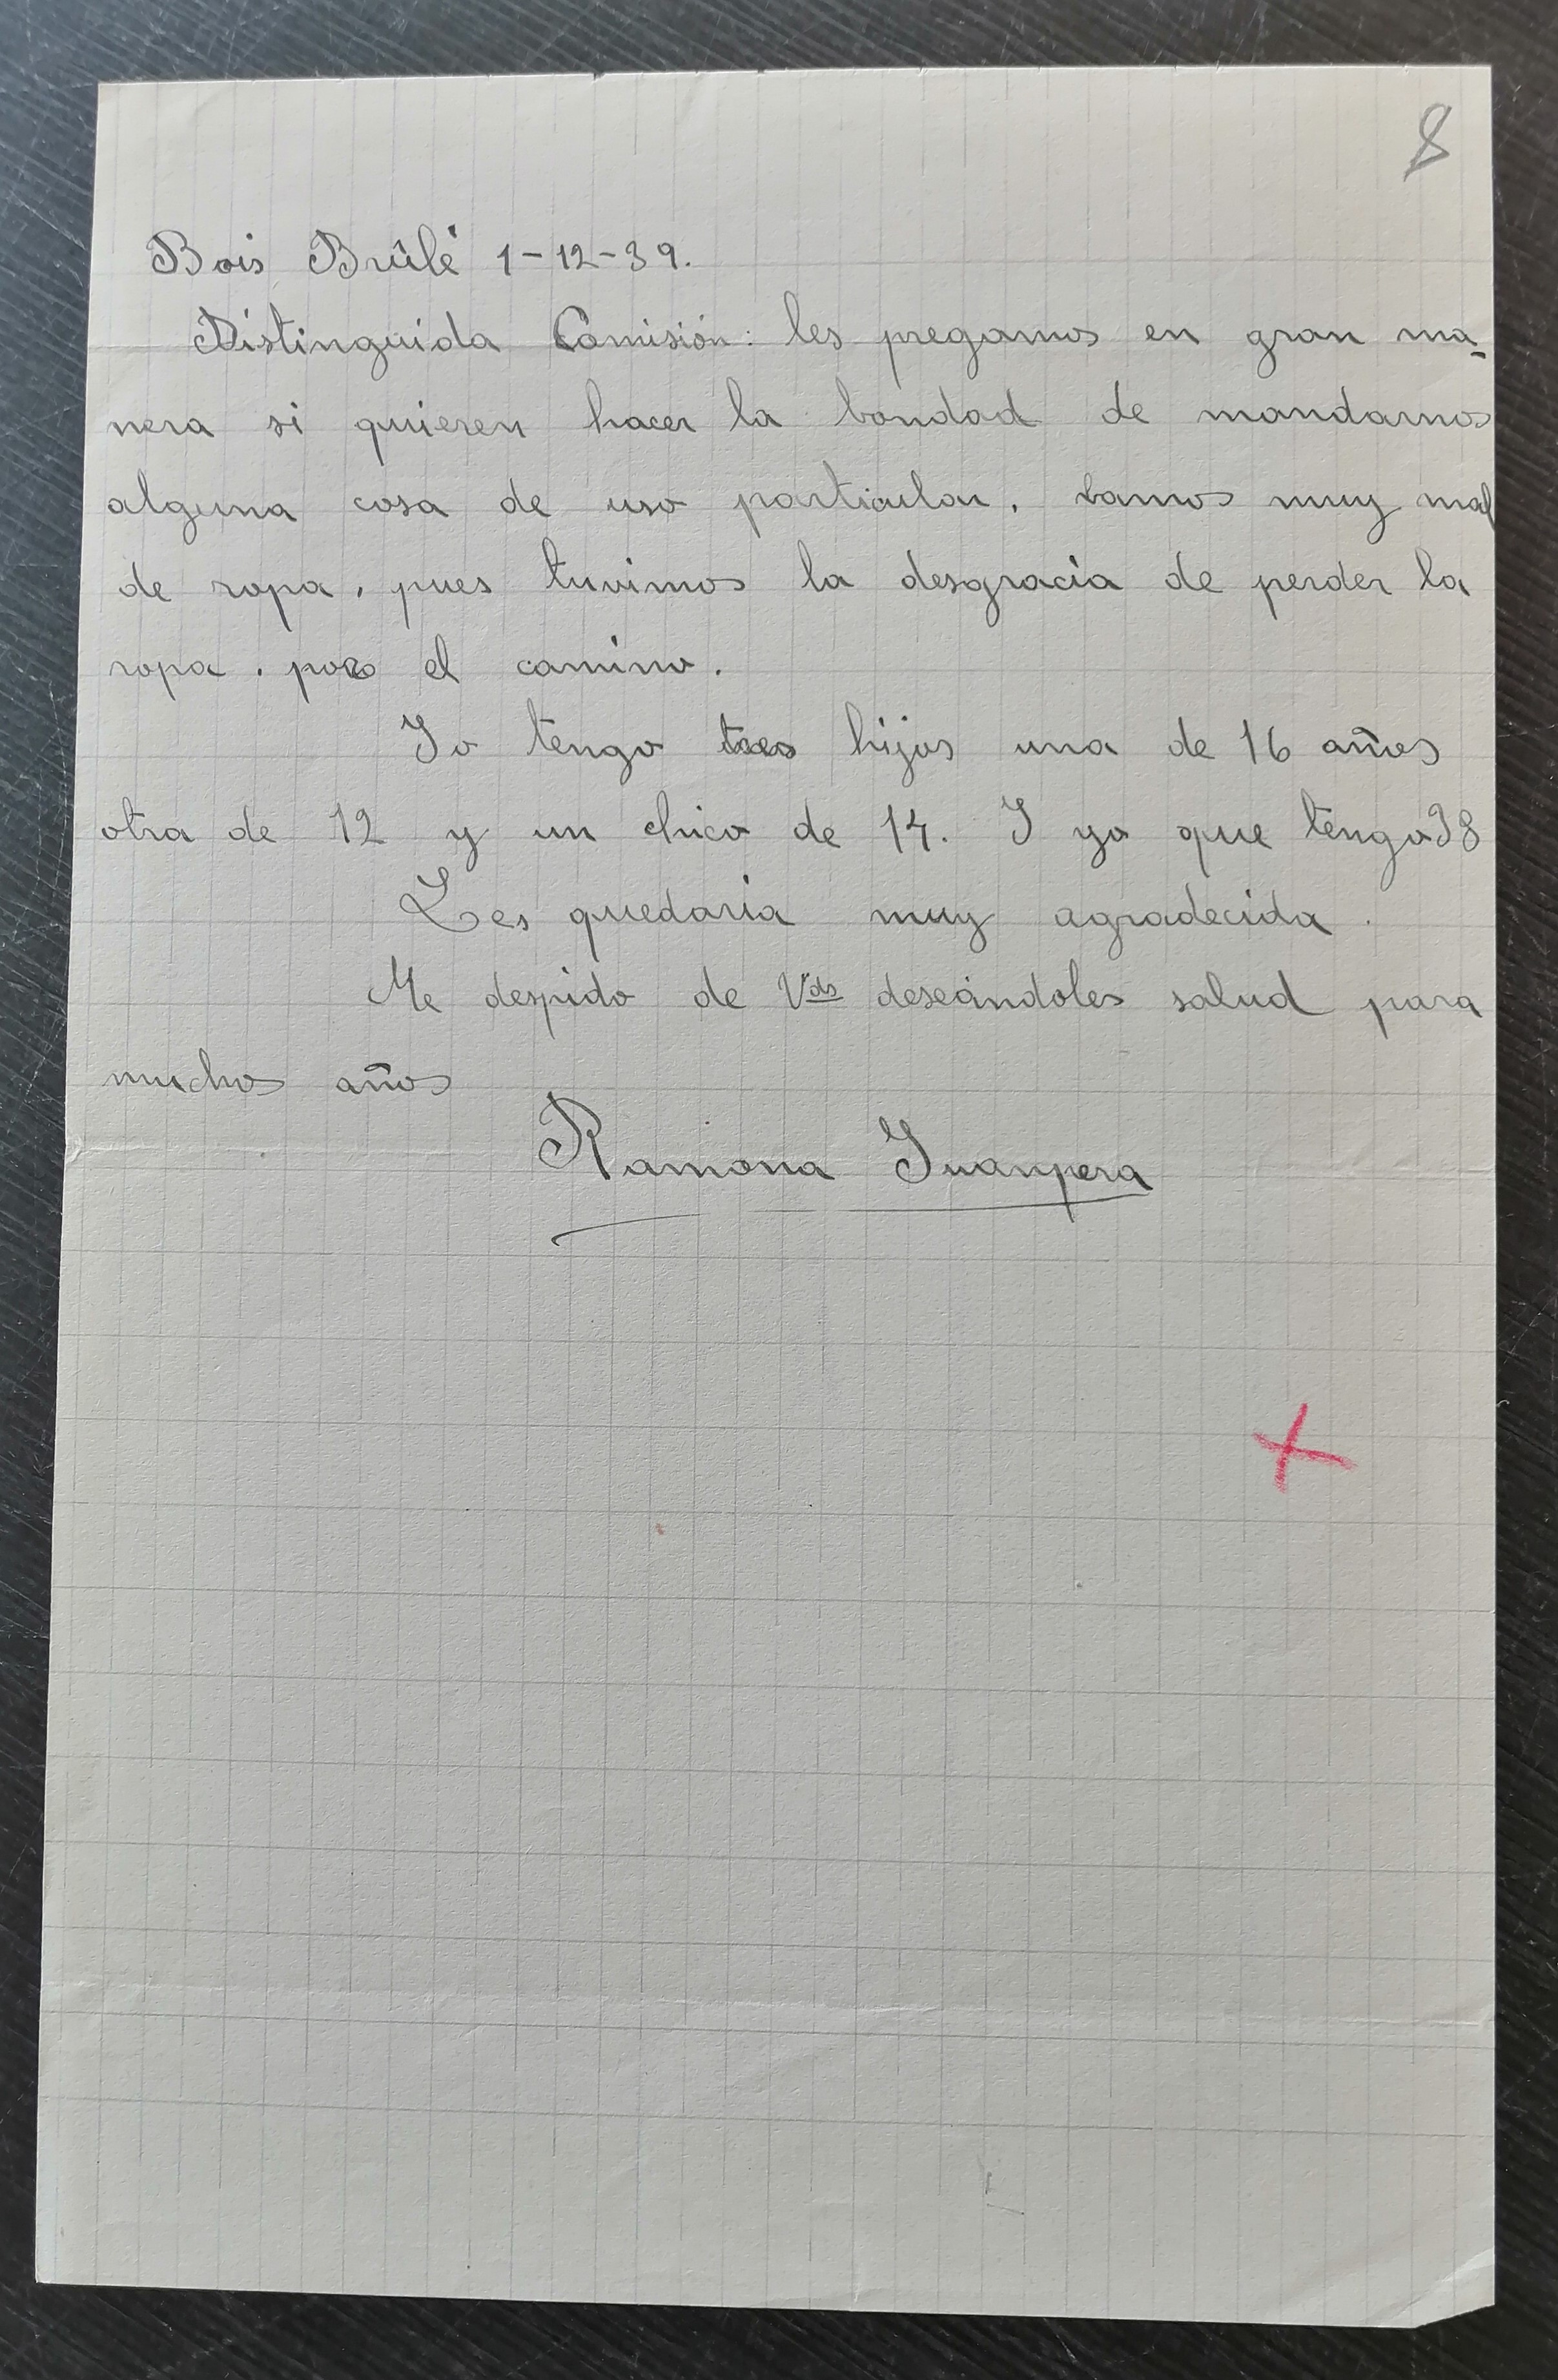 8
Bois Brûlé 1-12-39.
Distinguida Comisión: les pregamos en gran ma-
nera si quieren hacer la bondad de mandarnos
alguna cosa de uso particular. bamos muy mal
de ropa, pues tuvimos la desgracia de perder la
ropa. por el camino.
Yo tengo tres hijos una de 16 años
otra de 12 y un chico de 14. Y yo que tengo 38
Les quedaria muy agradecida.
Me despido de Vds deseándoles salud para
muchos años
Ramona Juanpera